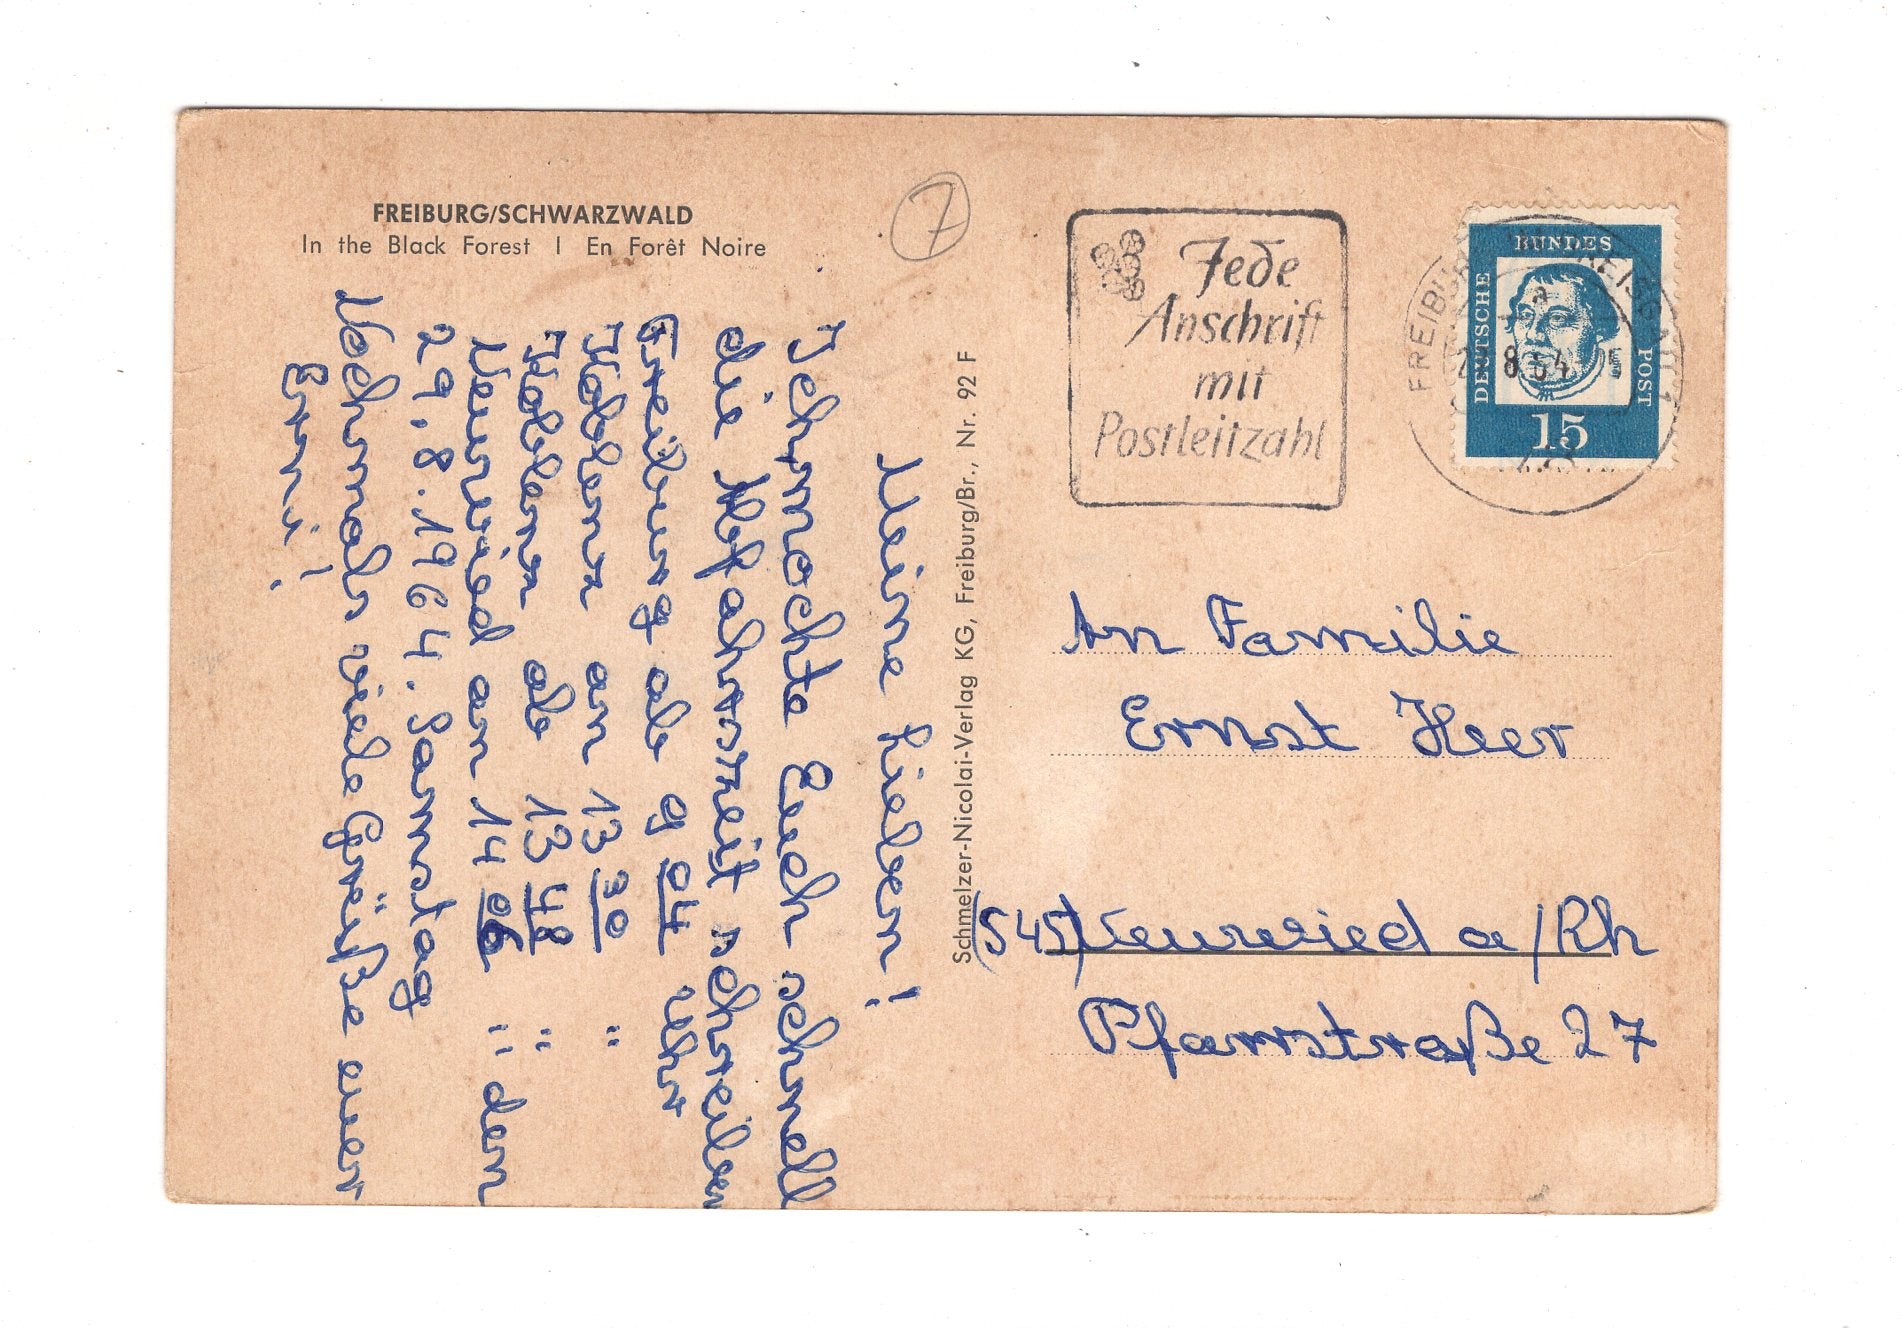 FREIBURG/SCHWARZWALD
In the Black Forest | En Forêt Noire
7
Meine Lieben!
Ich möchte Euch schnell
die Abfahrtszeit schreiben
Freiburg ab 9 04 Uhr
Koblenz an 13 30 "
Koblenz ab 13 48 "
Neuwied an 14 06 " den
29.8.1964. Samstag
Nochmals viele Grüße euer
Erni!
Schmelzer-Nicolai-Verlag KG, Freiburg/Br., Nr. 92 F
Jede
Anschrift
mit
Postleitzahl
FREIBURG
8.64
DEUTSCHE
BUNDES
POST
15
An Familie
Ernst Heer
(545) Neuwied a/Rh
Pfarrstraße 27